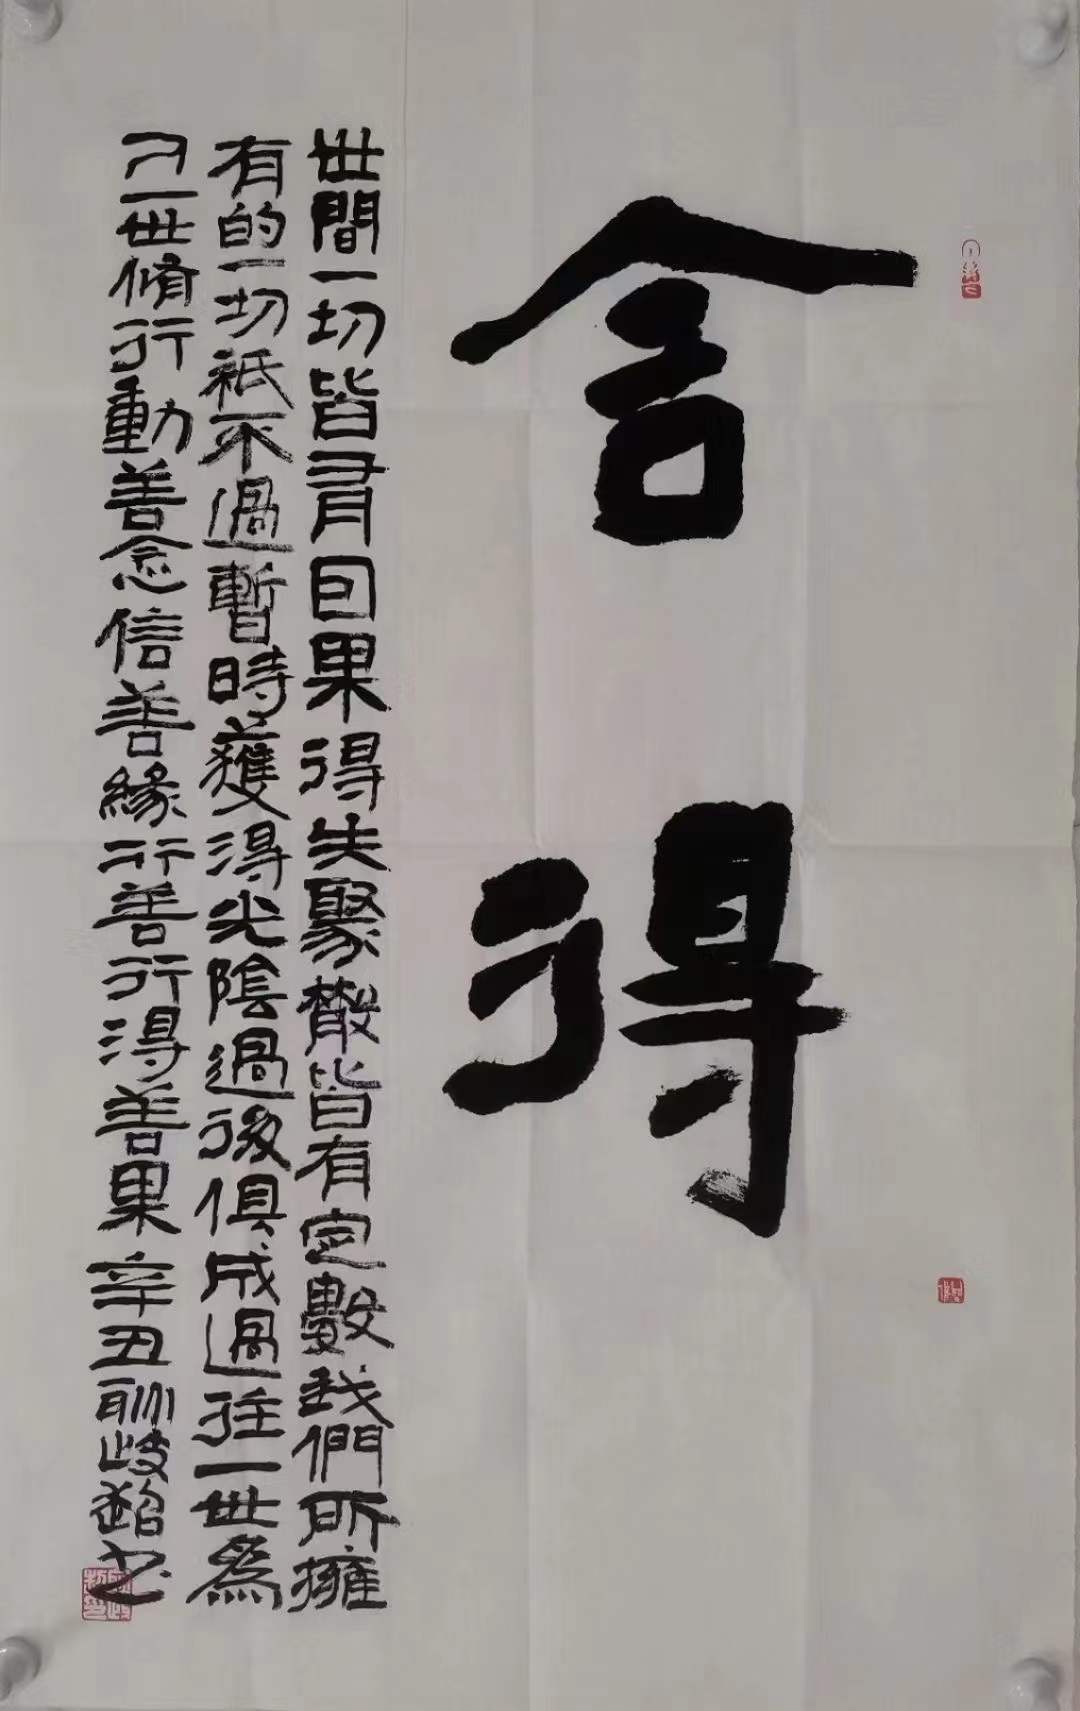 舍得
世間一切皆有因果得失聚散皆有定數我們所擁
有的一切衹不過暫時獲得光陰過後俱成過往一世為
了一世脩行動善念信善緣行善行得善果辛丑耿歧超书